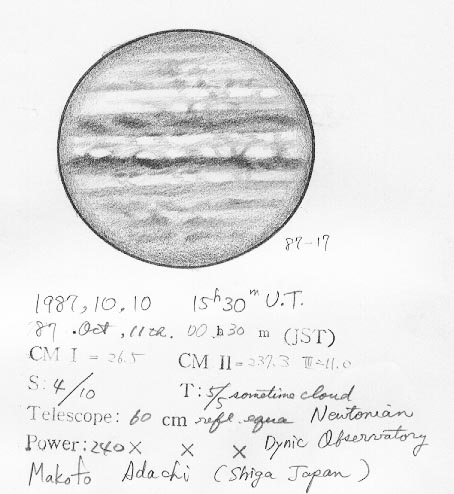 87-17
1987, 10, 10 15h30m U.T.
87 .Oct , 11 00 h 30 m (JST)
CM I = 26.5 CM II = 237.3 III=11.0
S: 4/10 T: 5/5 sometime cloud
Telescope: 60 cm refl. equa Newtonian
Power: 240 × × × Dynic Observatory
Makoto Adachi (Shiga Japan)